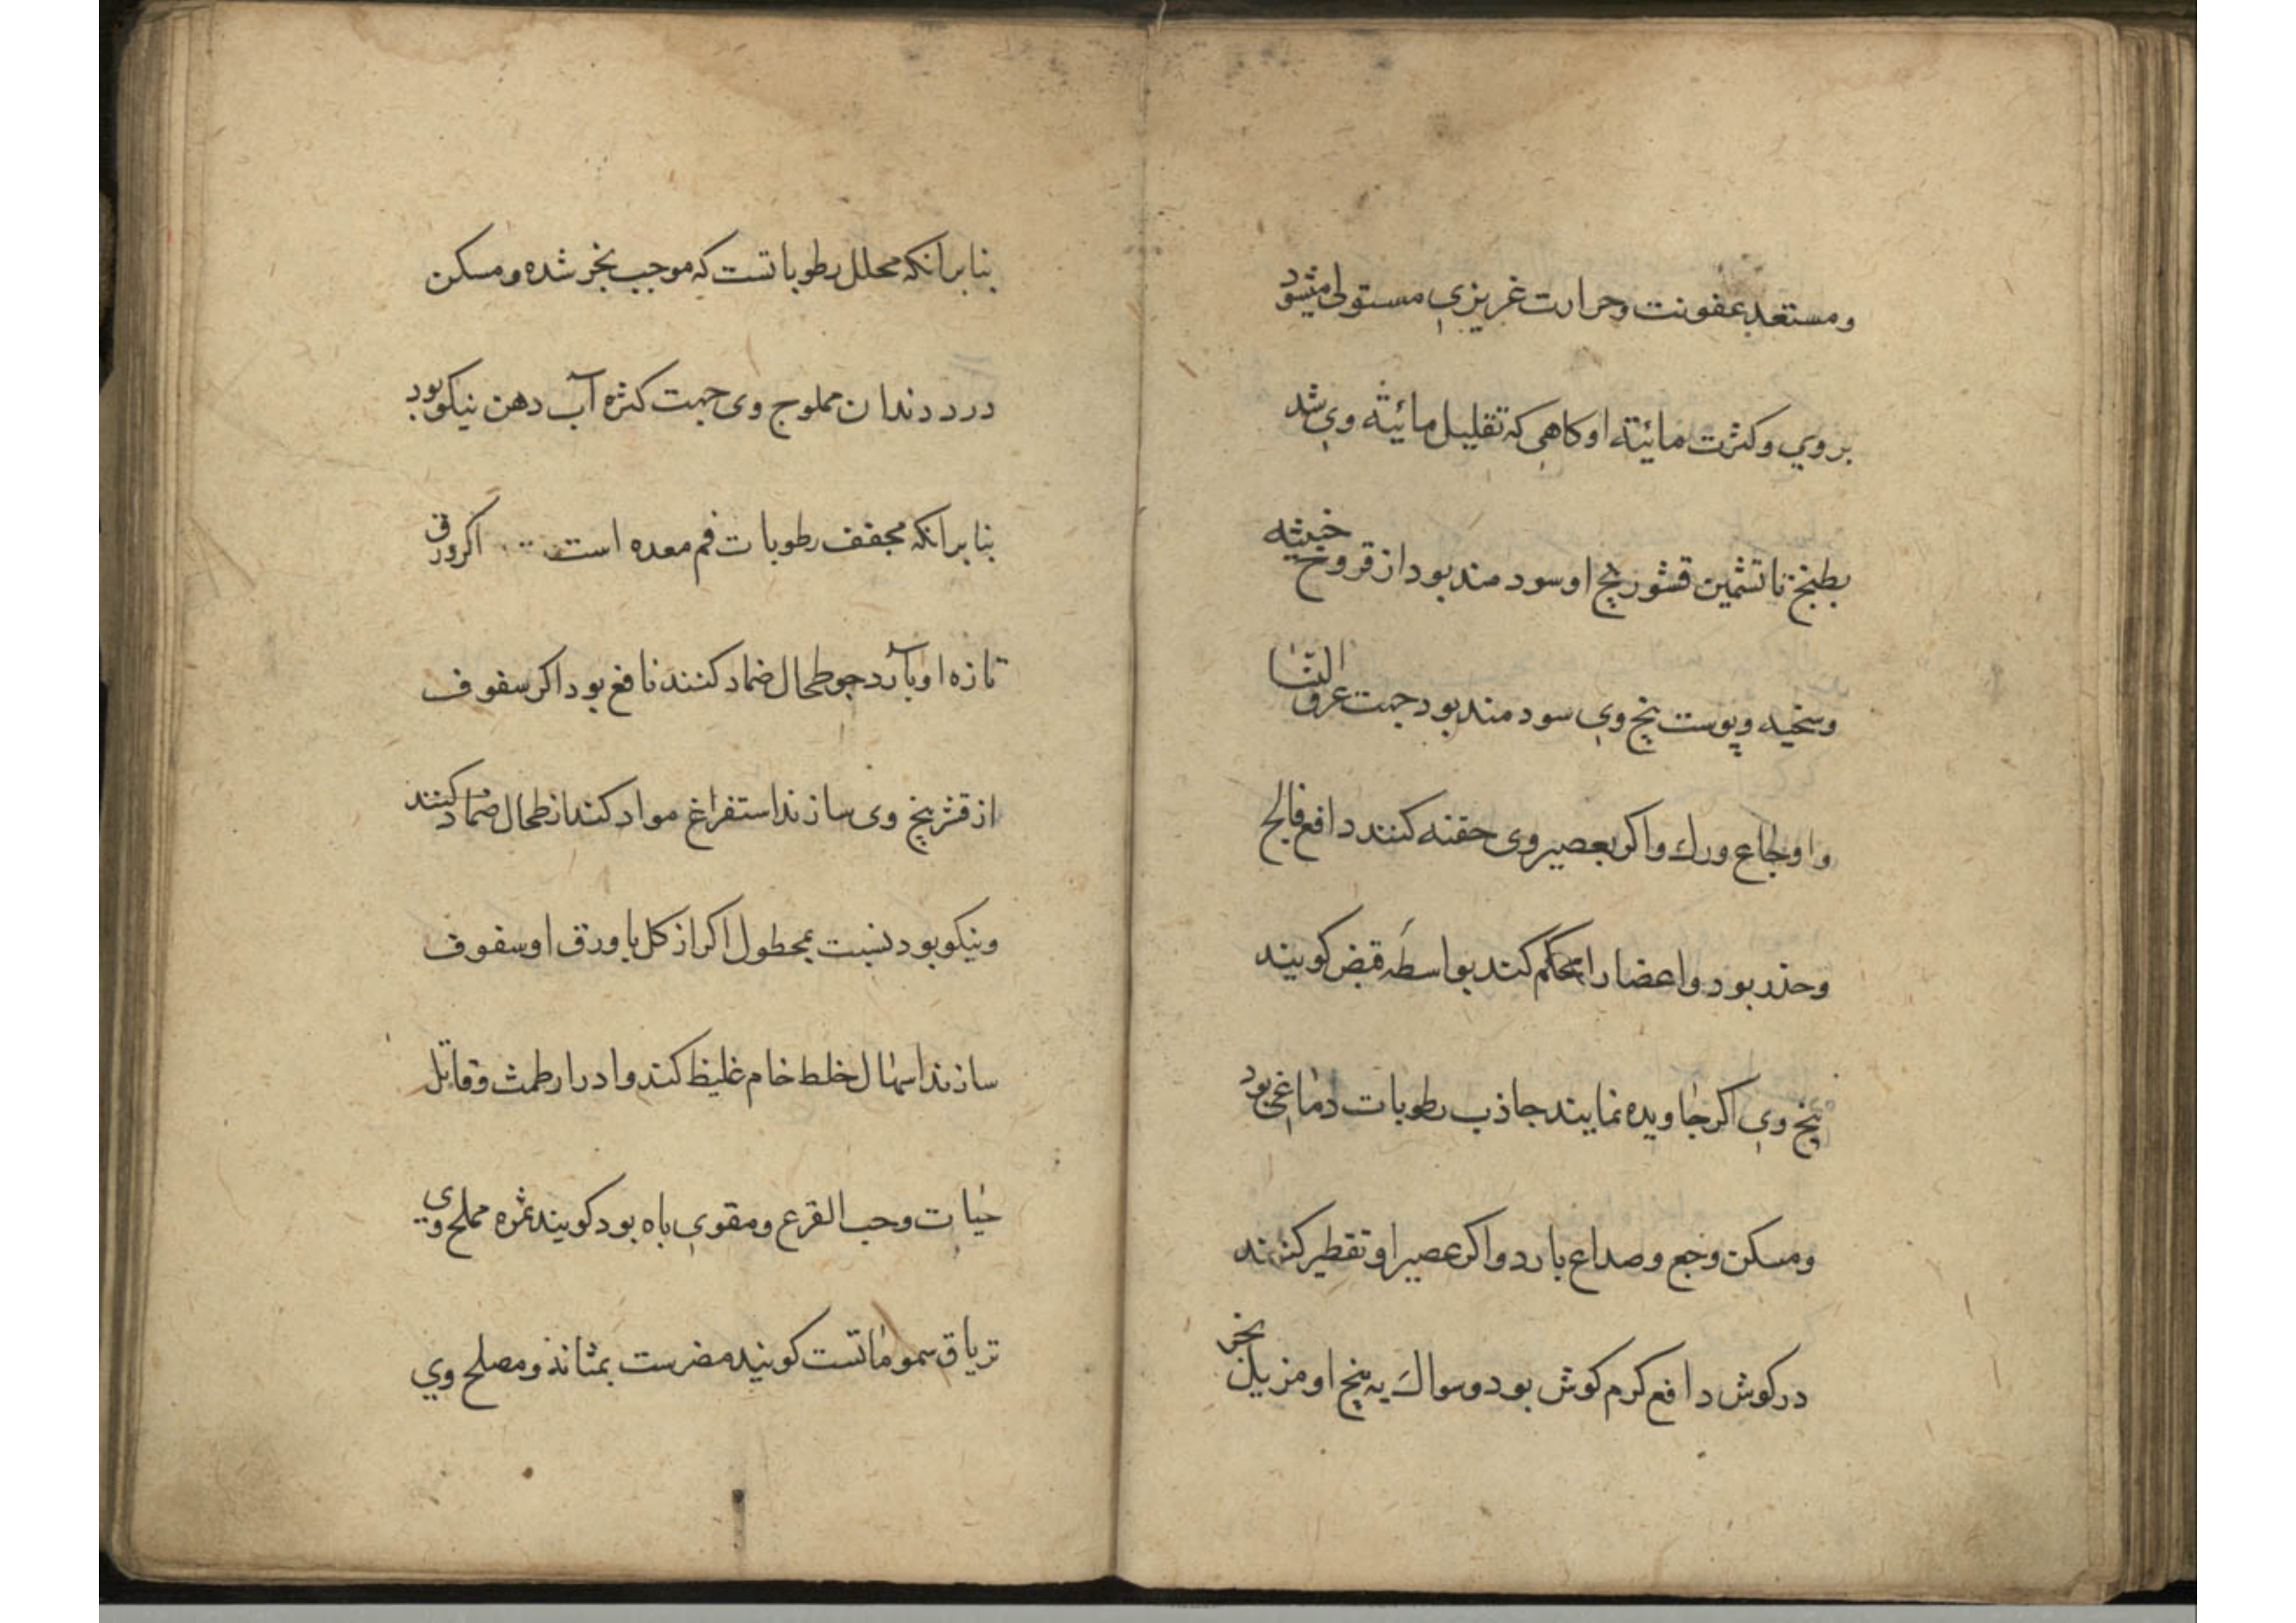 ومستعد بعفونت وحرارت غریزي مستولی میشود
بروي وکثرت مائیته اوکاهي که تقلیل مائیته وي شد
بطبخ تا تشمین قشور بیخ او سودمند بود از قروح خبیثه
وسخیه وپوست بیخ وي سودمند بود جهت عرق النسا
واوجاع ورك واکر بعصیر وی حقنه کنند دافع فالج
وحذر بود واعضا را محکم کند بواسطه قبض کویند
بیخ وي اکر جاویده نمایند جاذب رطوبات دماغي بود
ومسکن وجع وصداع بارد واکر عصیر او تقطیر کنند
درکوش دافع کرم کوش بود وسواك به بیخ او مزیل بخر
بنابر انکه محلل رطوباتست که موجب بخر شده ومسکن
درد دندان مملوح وی جهت کثره آب دهن نیکو بود
بنابر انکه مجفف رطوبات فم معده است اکر ورق
تازه او بآرد جو طحال ضماد کنند نافع بود اکر سفوف
از قشر بیخ وی سازند استفراغ مواد کند از طحال ضماد کنند
ونیکو بود نسبت بمحطول اکر از کل یا ورق او سفوف
سازند اسهال خلط خام غلیظ کند وادرار طمث وقاتل
حیات وحب القرع ومقوي باه بود کویند ثمره مملح وی
تریاق سموماتست کویند مضرست بمثانه ومصلح وي